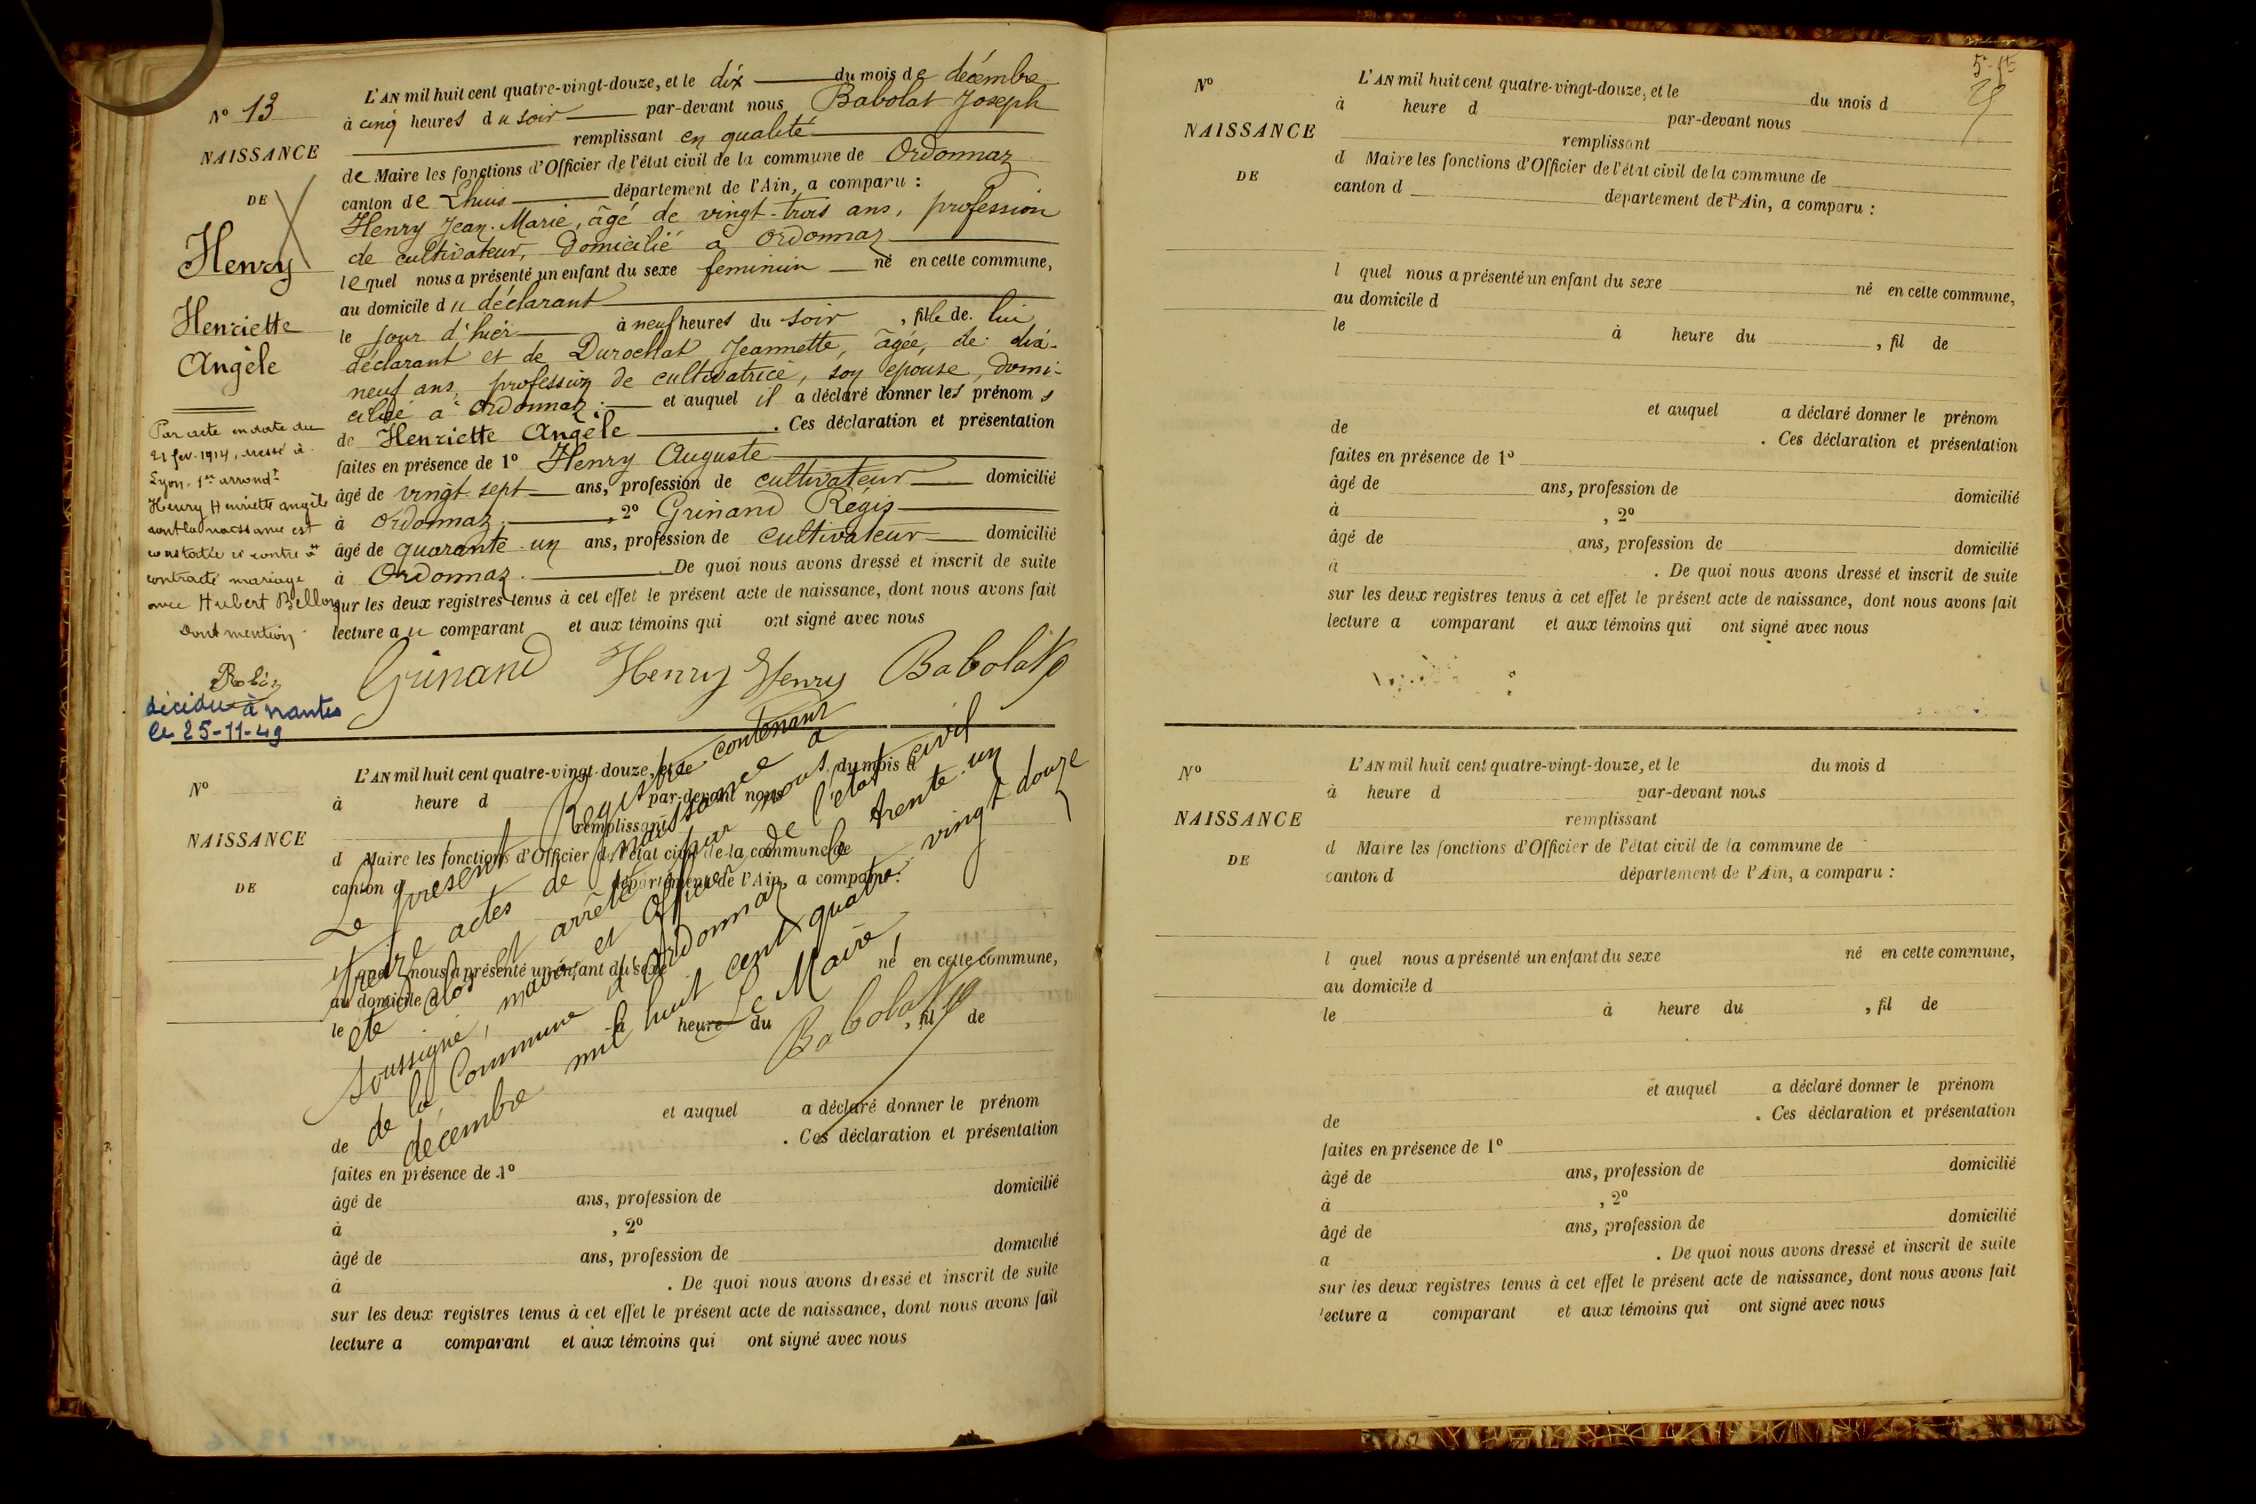 N° 13
NAISSANCE
DE
Henry
Henriette
Angèle
Par acte en date du
21 fev. 1914, dressé à
Lyon. 1er arrondt
Henry Henriette angèle
dont la naissance est
constatée ci contre a
contracté mariage
avec Hubert Bellon
Dont mention.
décédée à Nantes
le 25-11-49
L'AN mil huit cent quatre-vingt-douze, et le dix du mois de décembre
à cinq heures du soir par-devant nous Babolat Joseph
remplissant en qualité
de Maire les fonctions d'Officier de l'état civil de la commune de Ordonnaz
canton de Lhuis département de l'Ain, a comparu :
Henry Jean-Marie, âgé de vingt-trois ans, profession
de cultivateur, Domicilié à Ordonnaz
lequel nous a présenté un enfant du sexe feminin né en cette commune,
au domicile du déclarant
le jour d'hier à neuf heures du soir, fille de lui
déclarant et de Durochat Jeannette, âgée, de dix-
neuf ans, profession de cultivatrice, son épouse, domi-
ciliée à Ordonnaz. et auquel il a déclaré donner les prénoms
de Henriette Angèle. Ces déclaration et présentation
faites en présence de 1° Henry Auguste
âgé de vingt-sept ans, profession de cultivateur domicilié
à Ordonnaz, 2° Grinand Régis
âgé de quarante-un ans, profession de cultivateur domicilié
à Ordonnaz. De quoi nous avons dressé et inscrit de suite
sur les deux registres tenus à cet effet le présent acte de naissance, dont nous avons fait
lecture au comparant et aux témoins qui ont signé avec nous
Grinand Henry Henry Babolat
N°
NAISSANCE
DE
L'AN mil huit cent quatre-vingt-douze, et le du mois d
à heure d par-devant nous
remplissant
d Maire les fonctions d'Officier de l'état civil de la commune de
canton d département de l'Ain, a comparu :
l quel nous a présenté un enfant du sexe né en cette commune,
au domicile d
le à heure du , fil de
et auquel a déclaré donner le prénom
de . Ces déclaration et présentation
faites en présence de 1°
âgé de ans, profession de domicilié
à , 2°
âgé de ans, profession de domicilié
à . De quoi nous avons dressé et inscrit de suite
sur les deux registres tenus à cet effet le présent acte de naissance, dont nous avons fait
lecture a comparant et aux témoins qui ont signé avec nous
Le présent Registre contenant
treize actes de naissance a
été clos et arrêté par nous
soussigné, maire et officier de l'état civil
de la Commune d'Ordonnaz, le trente-un
décembre mil huit cent quatre vingt douze
Le Maire,
Babolat
5-15
N°
NAISSANCE
DE
L'AN mil huit cent quatre-vingt-douze, et le du mois d
à heure d par-devant nous
remplissant
d Maire les fonctions d'Officier de l'état civil de la commune de
canton d département de l'Ain, a comparu :
l quel nous a présenté un enfant du sexe né en cette commune,
au domicile d
le à heure du , fil de
et auquel a déclaré donner le prénom
de . Ces déclaration et présentation
faites en présence de 1°
âgé de ans, profession de domicilié
à , 2°
âgé de ans, profession de domicilié
à . De quoi nous avons dressé et inscrit de suite
sur les deux registres tenus à cet effet le présent acte de naissance, dont nous avons fait
lecture a comparant et aux témoins qui ont signé avec nous
N°
NAISSANCE
DE
L'AN mil huit cent quatre-vingt-douze, et le du mois d
à heure d par-devant nous
remplissant
d Maire les fonctions d'Officier de l'état civil de la commune de
canton d département de l'Ain, a comparu :
l quel nous a présenté un enfant du sexe né en cette commune,
au domicile d
le à heure du , fil de
et auquel a déclaré donner le prénom
de . Ces déclaration et présentation
faites en présence de 1°
âgé de ans, profession de domicilié
à , 2°
âgé de ans, profession de domicilié
a . De quoi nous avons dressé et inscrit de suite
sur les deux registres tenus à cet effet le présent acte de naissance, dont nous avons fait
lecture a comparant et aux témoins qui ont signé avec nous